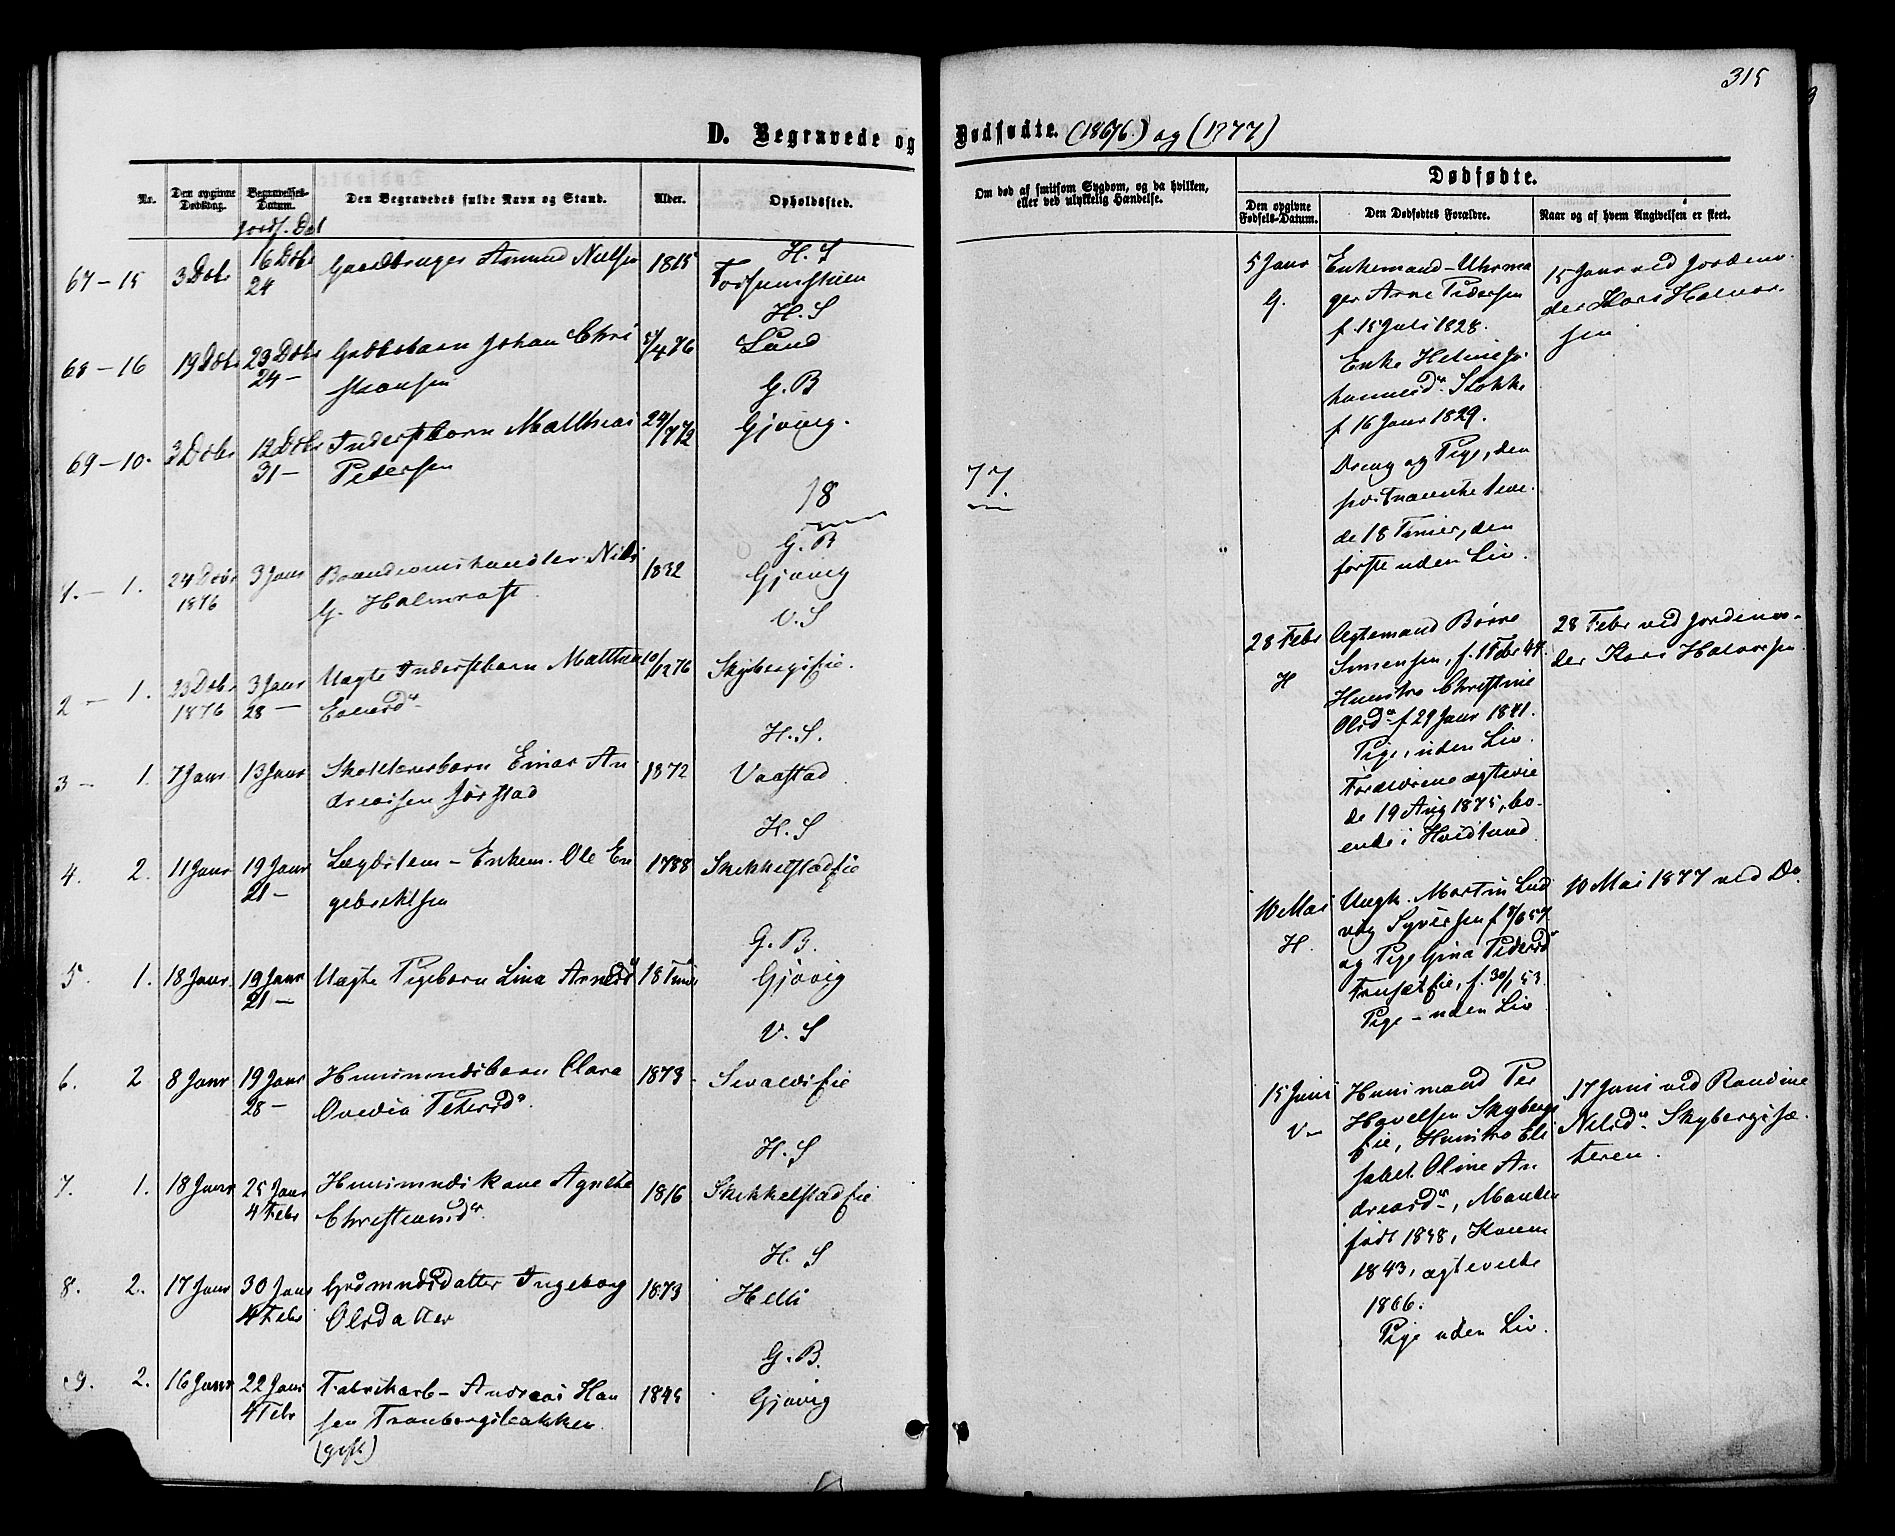 315
D. Begravede og Dødfødte. (1876) og (1877)
Nr.
Den opgivne Dødsdag.
Begravelses-Datum.
Jordf. Dat
Den Begravedes fulde Navn og Stand.
Alder.
Opholdssted.
Om død af smitsom Sygdom, og da hvilken, eller ved ulykkelig Hændelse.
Dødfødte.
Den opgivne Fødsels-Datum.
Den Dødfødtes Forældre.
Naar og af hvem Angivelsen er skeet.
H. S
67 – 15 3 Dcbr 16 Dcbr Gaardbruger Amund Nielsen 1815
24
H. S
68 – 16 19 Dcbr 23 Dcbr Johan Chri 4/76 Lund
24 – stiansen
G. B
69 – 10. 3 Dcbr 12 Dcbr Inderstbarn Matthias 24/7 72 Gjøvig.
31 – Pedersen
18 77.
G. B
1. – 1. 24 Dcbr 3 Janr Brændevinshandler Nils 1832 Gjøvig
1876 G. Holmrast
V. S
2 – 1. 23 Dcbr 3 Janr Uægte Inderstbarn Mathea 10/12 76 Skybergseie.
1876 28 –
H. S.
3 – 1. 7 Janr 13 Janr Einar An 1872 Vaastad
dreassen
H. S
4. 2. 11 Janr 19 Janr Lægdslem – Enkem. Ole En 1788 Skikkelstadeie
21 – gebrektsen
G. B.
5. 1. 18 Janr 19 Janr Uægte Pigebarn Lina Arnesd 18 Timer Gjøvig
21 –
V. S
6. 2 8 Janr 19 Janr Huusmandsbarn Clara 1873 Sivaldseie
28 – Ovedia Petersdr.
H. S
7. 1. 18 Janr 25 Janr Huusmandskone Agnethe 1816 Skikkelstadeie
4 Febr Christiansdr.
H. S
8. 2. 17 Janr 30 Janr Grdmandsdatter Ingeborg 1873 Helli
4 Febr Olsdatter
G. B.
9. 2. 16 Janr 22 Janr Fabrikarb – Andreas Han 1845 Gjøvig
4 Febr sen Tranbergsbakken
(gift)
5 Janr
G.
Enkemand – Uhrma
ger Arne Pedersen
f. 15 Juli 1828.
Enke Helene Jo
hannesdr. Stokke
f 16 Janr 1829.
Dreng og Pige, den
sidstnævnte leve
de 18 Timer, den
første uden Liv.
15 Janr ved Jordemo-
der Kari Halvor-
sen
28 Febr
H
Ægtemand Børre
Simensen, f. 1 Febr 44.
Hustro Christine
Olsdr. f 29 Janr 1841.
Pige, uden Liv.
Forældrene ægtevie
de 19 Aug 1875, bo-
ende i Hvidtund
28 Febr ved Jordemo-
der Kari Halvorsen
10 Mai
H.
Ungk. Martin Lud
vig Syversen f 8/6 57.
og Pige Gina Pedersdr
f. 30/1 53.
Pige – uden Liv
10 Mai 1877 ved Do.
15 Juni
V –
Huusmand Per
Hovelsen Skybergs
eie, Hustro Eli
sabet Oline An
dreasdr –, Manden
født 1838, Konen
1843, ægteviede
1866.
Pige uden Liv.
17 Juni ved Randine
Nilsdr. Skybergsæ-
teren.